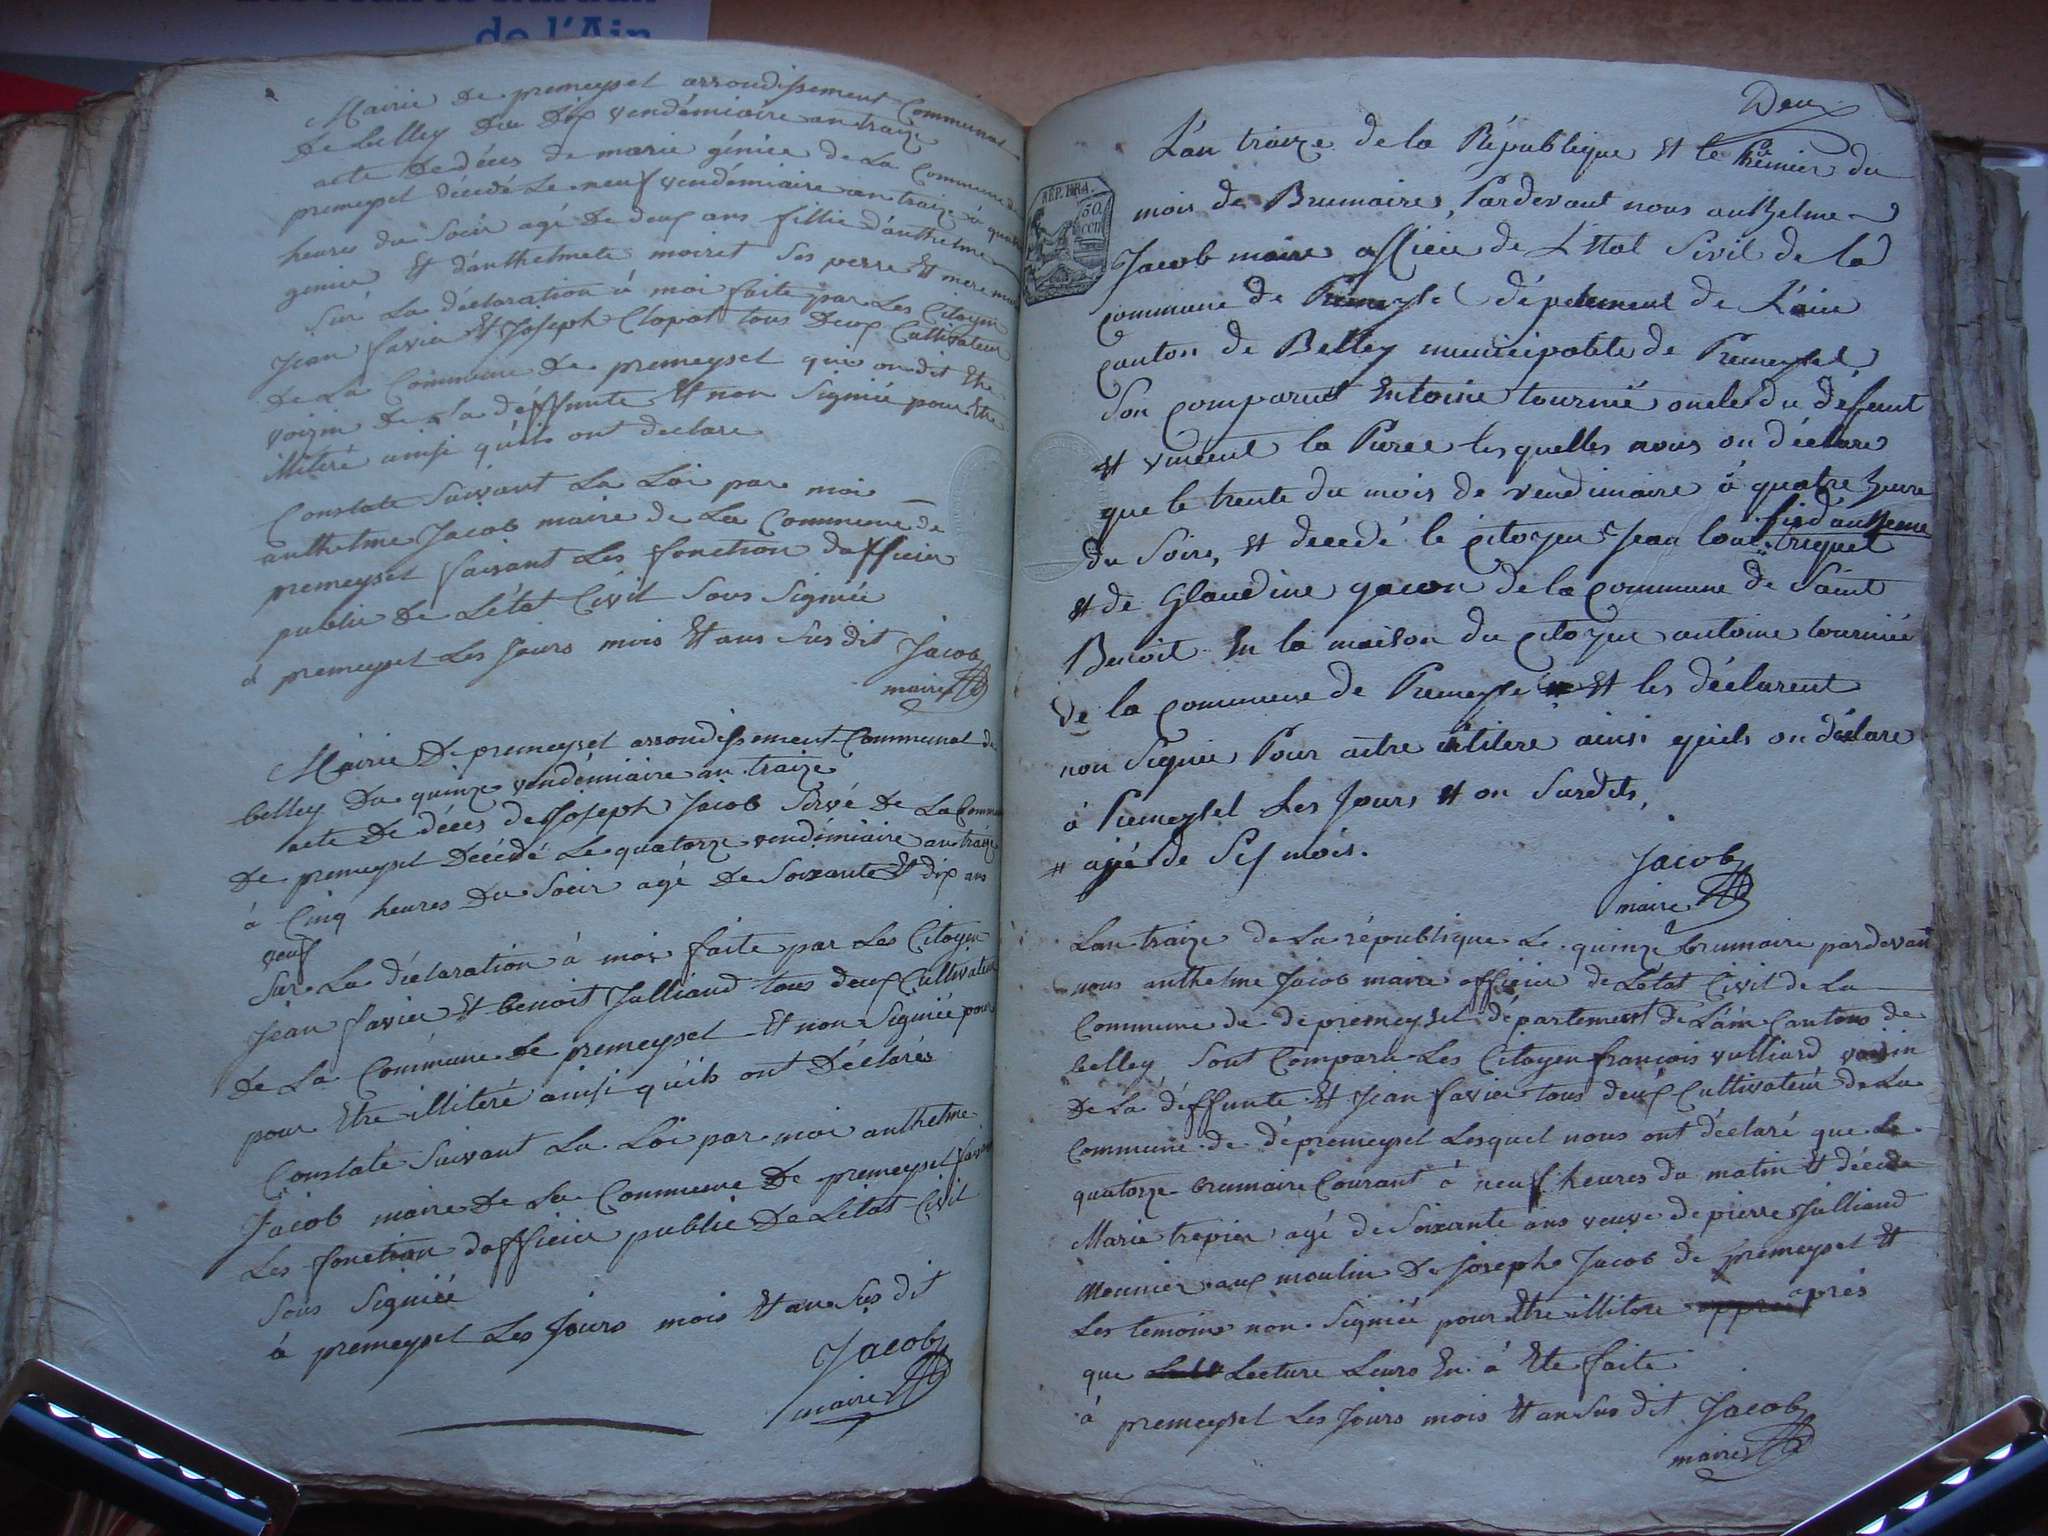 de l'Ain
Mairie De premeysel arrondissement Communal
De belley Du Dix vendémiaire an traize
acte De décès de marie génice de La Commune de
premeysel décédé Le neuf vendémiaire an traize à quatre
heures du Soeir agé De deux ans fillie d'anthelme
genice Et d'anthelmete moiret Ses perre Et mere
Sur La déclaration à moi faite par Les Citoyen
Jean favier Et Joseph Clopot tous Deux Cultivateur
De La Commune De premeysel qui on dit Etre
voizin De La déffunte Et non Signiée pour Etre
illiteré ainsi quils ont declare
Constate Suivant La Loi par moi
anthelme Jacob maire de La Commune de
premeysel faisant Les fonction dofficier
public De Létat Civil Sous Signiée
à premeysel Les Jours mois Et ans Sus dit Jacob
maire
Mairie De premeysel arrondissement Communal de
belley Du quinze vendémiaire an traize
acte De décès de Joseph Jacob Servé De La Commune
De premeysel Décédé Le quatorze vendémiaire an traize
à Cinq heures Du Soeir agé De Soixante Et dix ans
veuf
Sur La déclaration à moi faite par Les Citoyen
Jean favier Et benoit Julliand tous deux Cultivateur
De La Commune De premeysel Et non Signiée pour
pour Etre illiteré ainsi quils ont Déclarés
Constaté Suivant La Loi par moi anthelme
Jacob maire De La Commune De premeysel faisant
Les fonction dofficier public De Létat Civil
Sous Signiée
à premeysel Les Jours mois Et an Sus dit
Jacob
maire
Deux
L'an traize de la République Et le Premier du
REP. FRA.
50
cen
mois de Brumaire, Pardevant nous anthelme
Jacob maire officie de L'Etat Sivil de la
commune de Premeysel dépatement de L'ain
canton de Belley municipalite de Premeysel
Son comparut Entoine tournié oncle du défunt
Et vincent la Pierre lesquelles nous on déclare
que le trente du mois de vendimiaire à quatre heure
fis d'anthelme
du Soire, Et decedé le citoyen Jean Loui triquet
Et de Glaudine gacon de la commune de Saint
Benoit En la maison du citoyen antoine tourniée
de la commune de Premeysel Et les déclarent
non Signée Pour aitre illiteré ainsi quils on déclare
à Premeysel Les Jours Et an Surdits,
# agé de Six mois.
Jacob
maire
Lan traize de La république Le quinze brumaire pardevant
nous anthelme Jacob maire officier de Létat Civil de La
Commune de depremeysel département de L'ain Cantons de
belley, Sont Comparu Les Citoyen françois vulliard voisin
De La déffunte Et Jean favier tous deux Cultivateur de La
Commune de dépremeysel Lesquel nous ont déclaré que Le
quatorze brumaire Courant à neuf heures du matin Et décéde
Marie trepier agé de Soixante ans veuve de pierre Julliand
Meunier aux moulin De Joseph Jacob de premeysel Et
Les temoins non Signiée pour Etre illitere après
que Lecture Leurs En à Ete faite
à premeysel Les Jours mois Et an Sus dit Jacob
maire